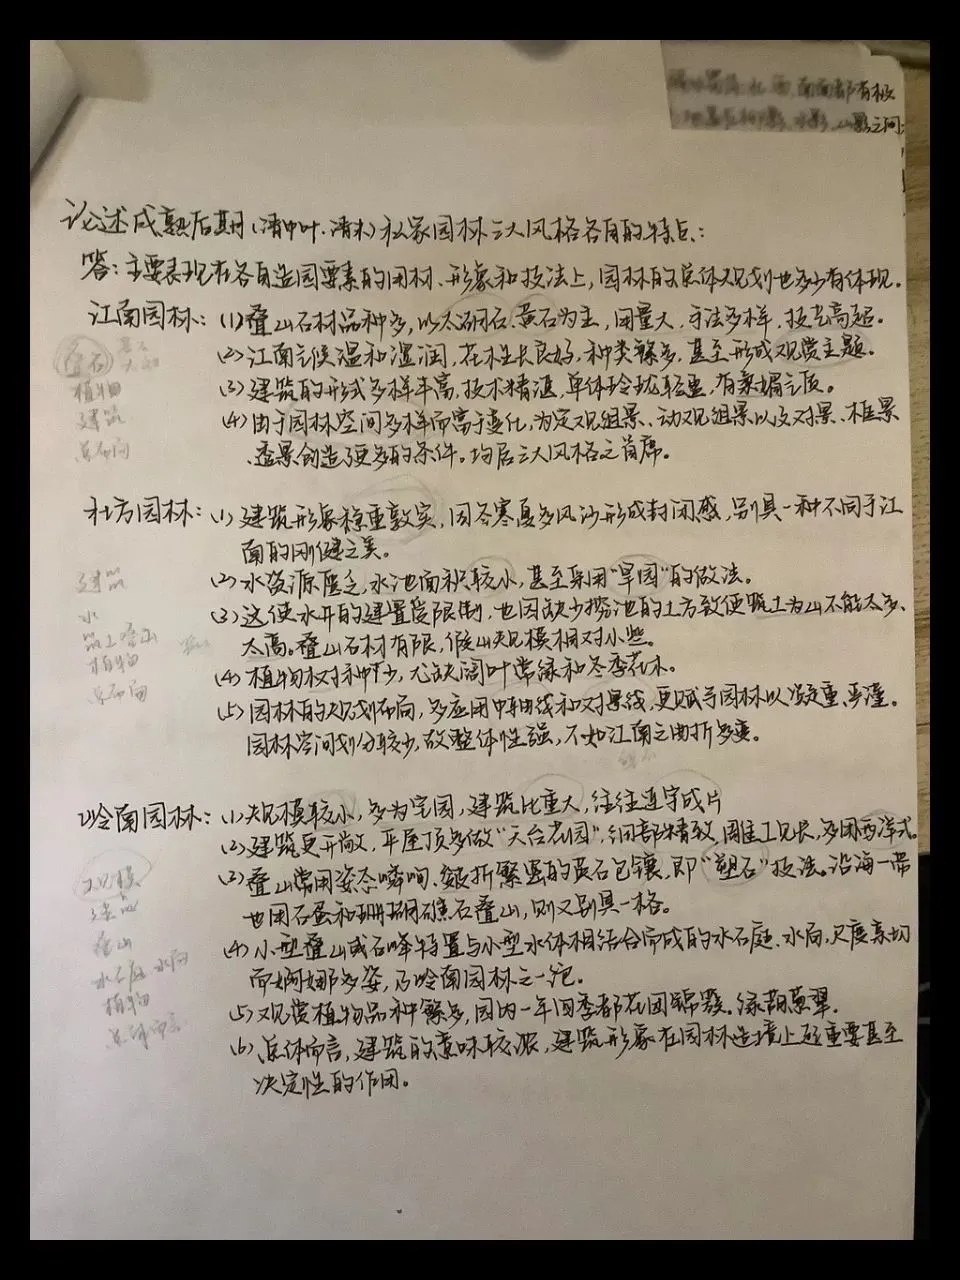 南面都有极
山影之间
论述成熟后期(清中叶.清末)私家园林三大风格各自的特点:
答:主要表现在各自造园要素的用材、形象和技法上,园林的总体规划也多少有体现.
江南园林:(1)叠山石材品种多,以太湖石、黄石为主,用量大,手法多样,技艺高超.
(2)江南气候温和湿润,花木生长良好,种类繁多,甚至形成观赏主题.
(3)建筑的形式多样丰富,技术精湛,单体玲珑轻盈,有柔媚之质.
(4)由于园林空间多样而富于变化,为定观组景、动观组景以及对景、框景
、透景创造了更多的条件.均居三大风格之首席.
叠石
植物
建筑
总布局
北方园林:(1)建筑形象稳重敦实,因冬寒夏多风沙形成封闭感,别具一种不同于江
南的刚健之美.
(2)水资源匮乏,水池面积较小,甚至采用"旱园"的做法。
(3)这使水开的建置受限制,也因缺少挖池的土方致使筑土为山不能太多、
太高。叠山石材有限,假山规模相对小些。
(4)植物相对种少,尤缺阔叶常绿和冬季花木。
(5)园林的规划布局,多应用中轴线和对景线,更赋予园林以凝重、严谨。
园林空间划分较少,故整体性强,不如江南之曲折多变。
建筑
水
筑土叠山
植物
总布局
岭南园林:(1)规模较小,多为宅园,建筑比重大,往往连宇成片
(2)建筑更开敞,平屋顶多做"天台花园",细部精致,雕工见长,多用西洋式.
(3)叠山常用姿态嶙峋、皴折繁密的英石包镶,即"塑石"技法。沿海一带
也用石蛋和珊瑚礁石叠山,则又别具一格。
(4)小型叠山或石峰特置与小型水体相结合而成的水石庭、水局,尺度亲切
而婀娜多姿,乃岭南园林之一绝。
(5)观赏植物品种繁多,园内一年四季都花团锦簇、绿荫葱翠.
(6)总体而言,建筑的意味较浓,建筑形象在园林造境上起重要甚至
决定性的作用。
规模
建筑
叠山
水石庭 水局
植物
总体而言